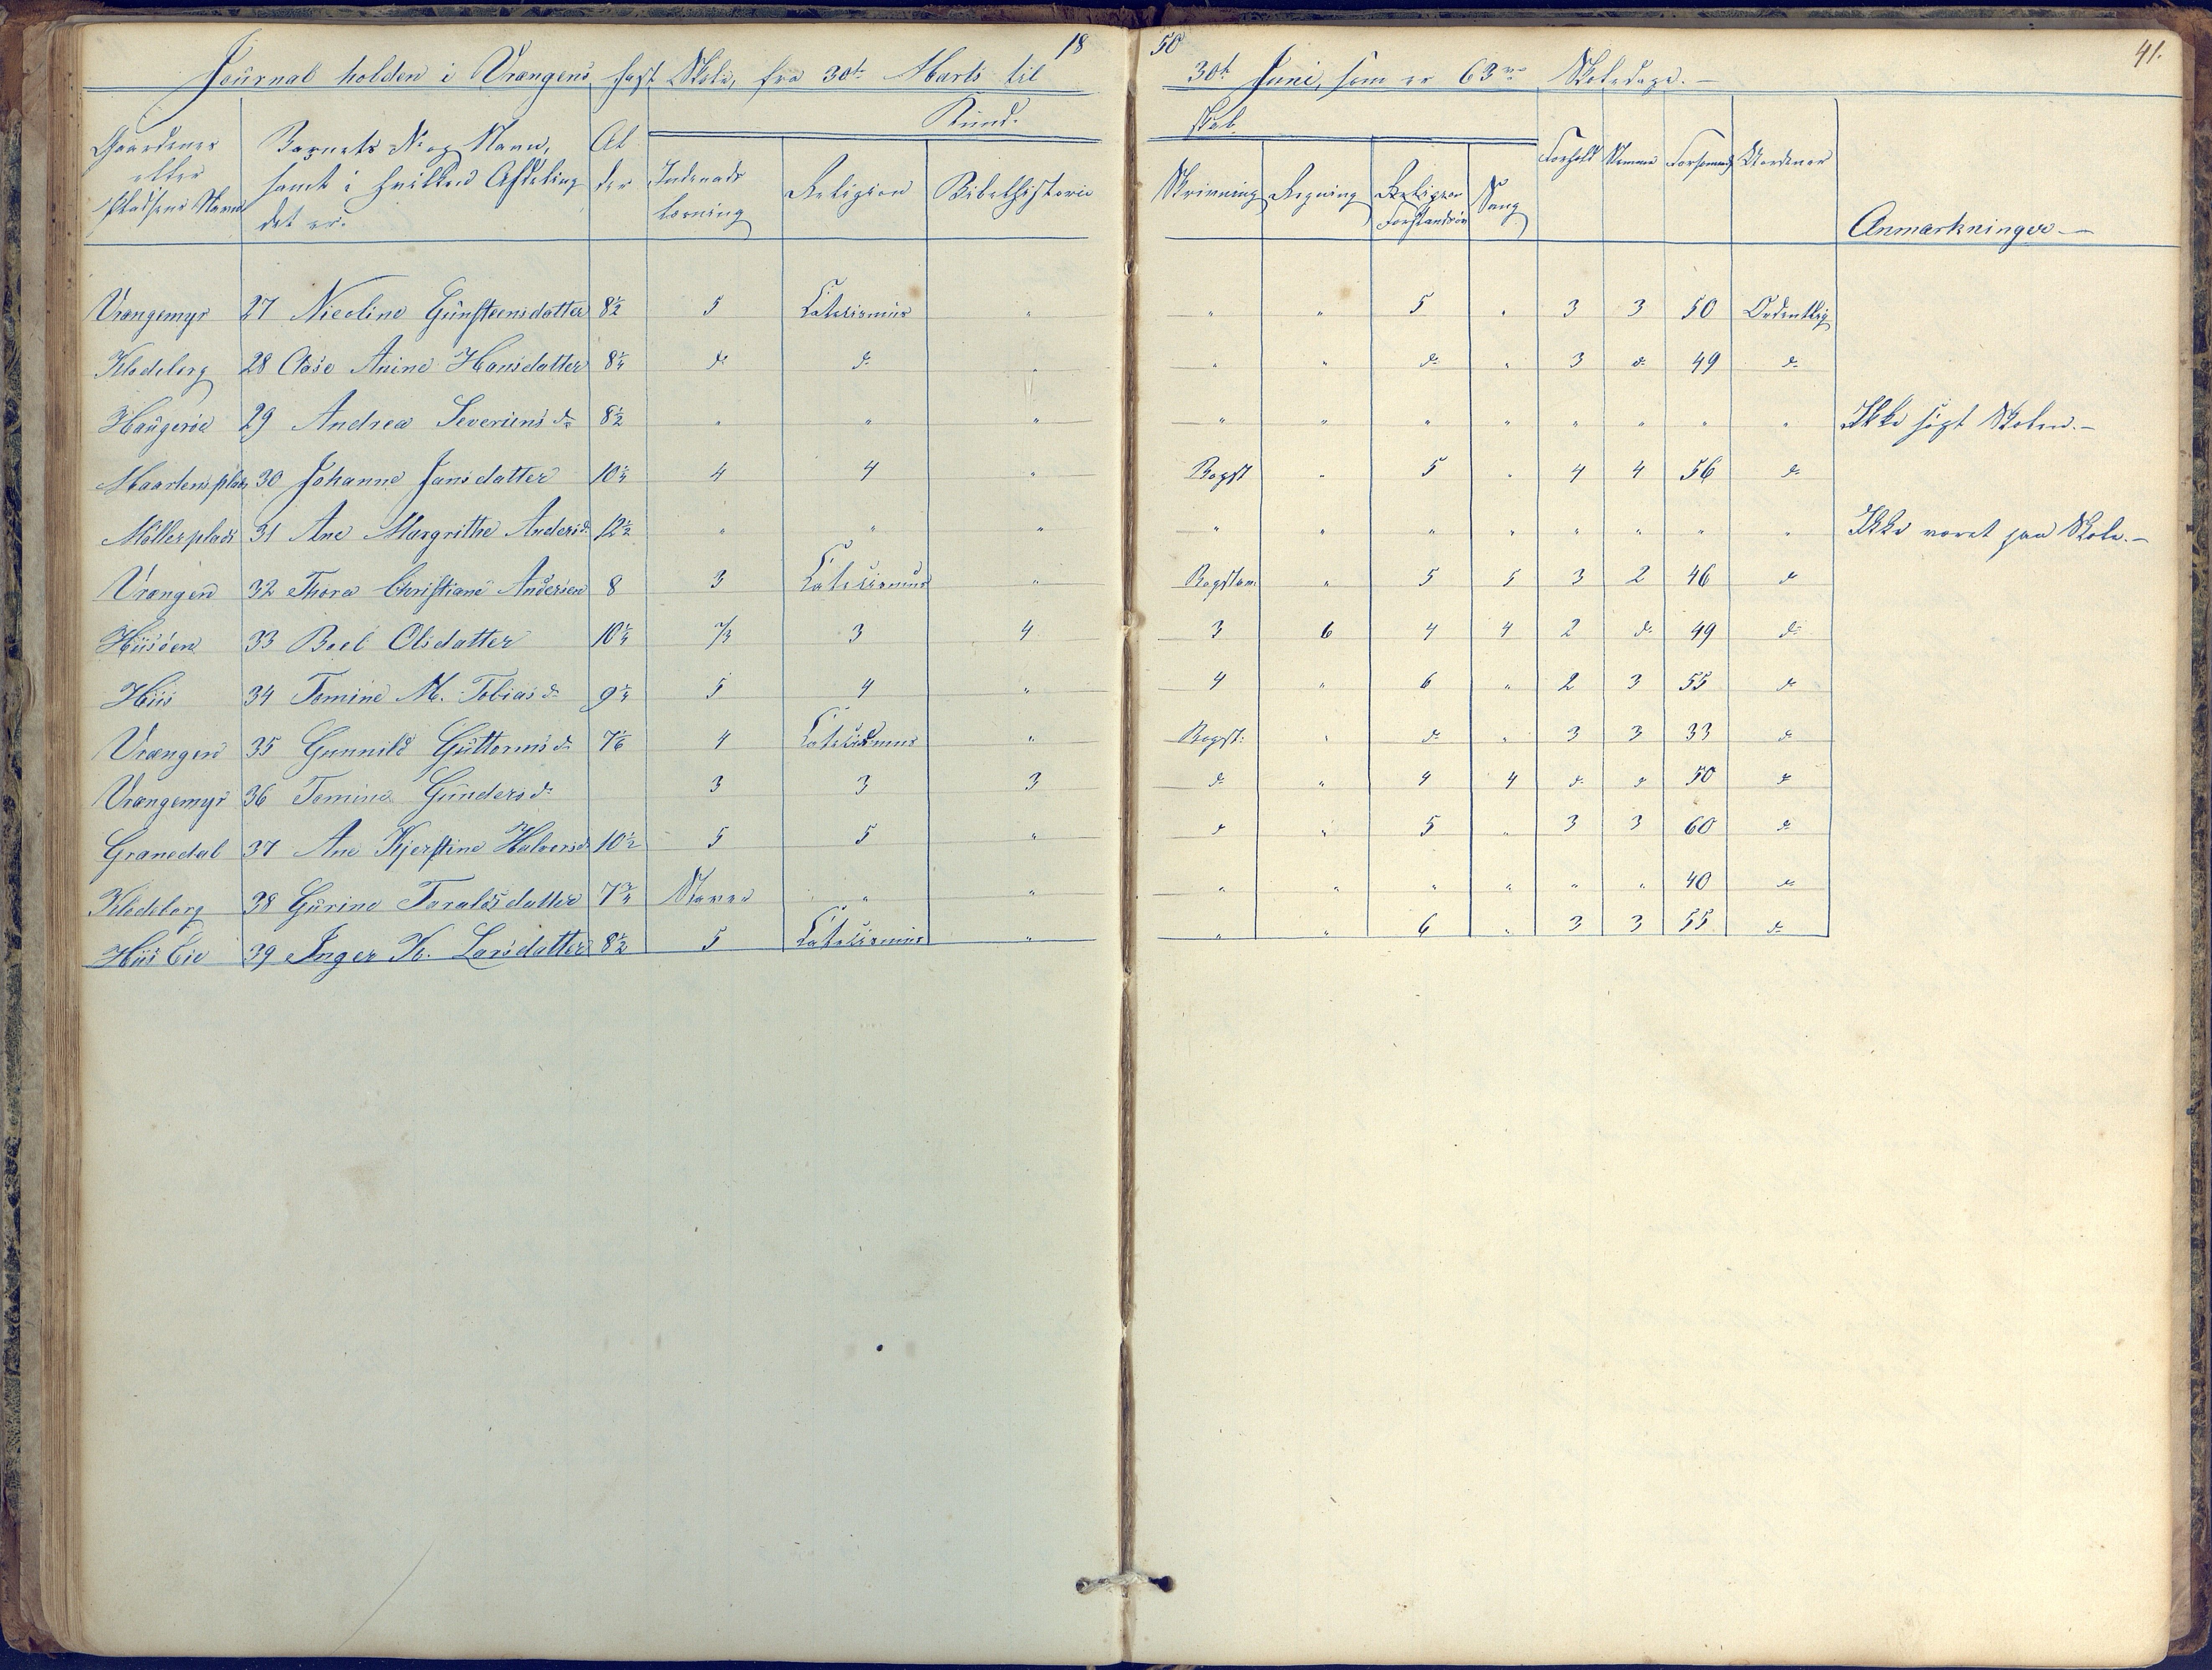 18 50 41.
Journal holden i Vrængens fast Skole, fra 30te Marts til 30te Juni, som er 63 Skoledage.—
Kund- skab.
Gaardenes eller Pladsens Navn
Barnets No og Navn, samt i hvilken Afdeling det er.
Alder
Indenads Læsning
Religion
Bibelhistorie
Skrivning
Regning
Religion Forstandsøv
Sang
Forhold
Nemme
Forsømmels
Anmærkninger.—
Vrangemyr 27 Nicoline Gunsteensdatter 8½ 5 Catecismus " " " 5 " 3 3 50 Ordentlig
Kledeberg 28 Aase Anine Hansdatter 8¼ do do " " " do " 3 do 49 do
Haugerød 29 Andrea Severins do 8½ " " " " " " " " " " " Ikke søgt Skolen.—
Maartensplads 30 Johanne Jansdatter 10¼ 4 4 " Bogst " 5 " 4 4 56 do
Møllerplads 31 Ane Margrithe Andersd. 12½ " " " " " " " " " " " Ikke været paa Skole.—
Vrængen 32 Thora Christiane Andersen 8 3 Catecismus " Bogstav. " 5 5 3 2 46 do
Hüsøen 33 Boel Olsdatter 10¼ 7/3 3 4 3 6 4 4 2 do 49 do
Hüs 34 Tomine M. Tobias do 9¼ 5 4 " 4 " 6 " 2 3 55 do
Vrængen 35 Gunnild Guttorms do 7⅙ 4 Catecismus " Bogst: " do " 3 3 33 do
Vrængemyr 36 Tomine Gunders do 3 3 3 do " 4 4 do do 50 do
Granedal 37 Ane Kjerstine Halvorsd. 10½ 5 5 " do " 5 " 3 3 60 do
Kledeberg 38 Gurine Taraldsdatter 7¾ Staver " " " " " " " " 40 do
Hüs Eie 39 Inger K. Larsdatter 8½ 5 Catecismus " " " 6 " 3 3 55 do